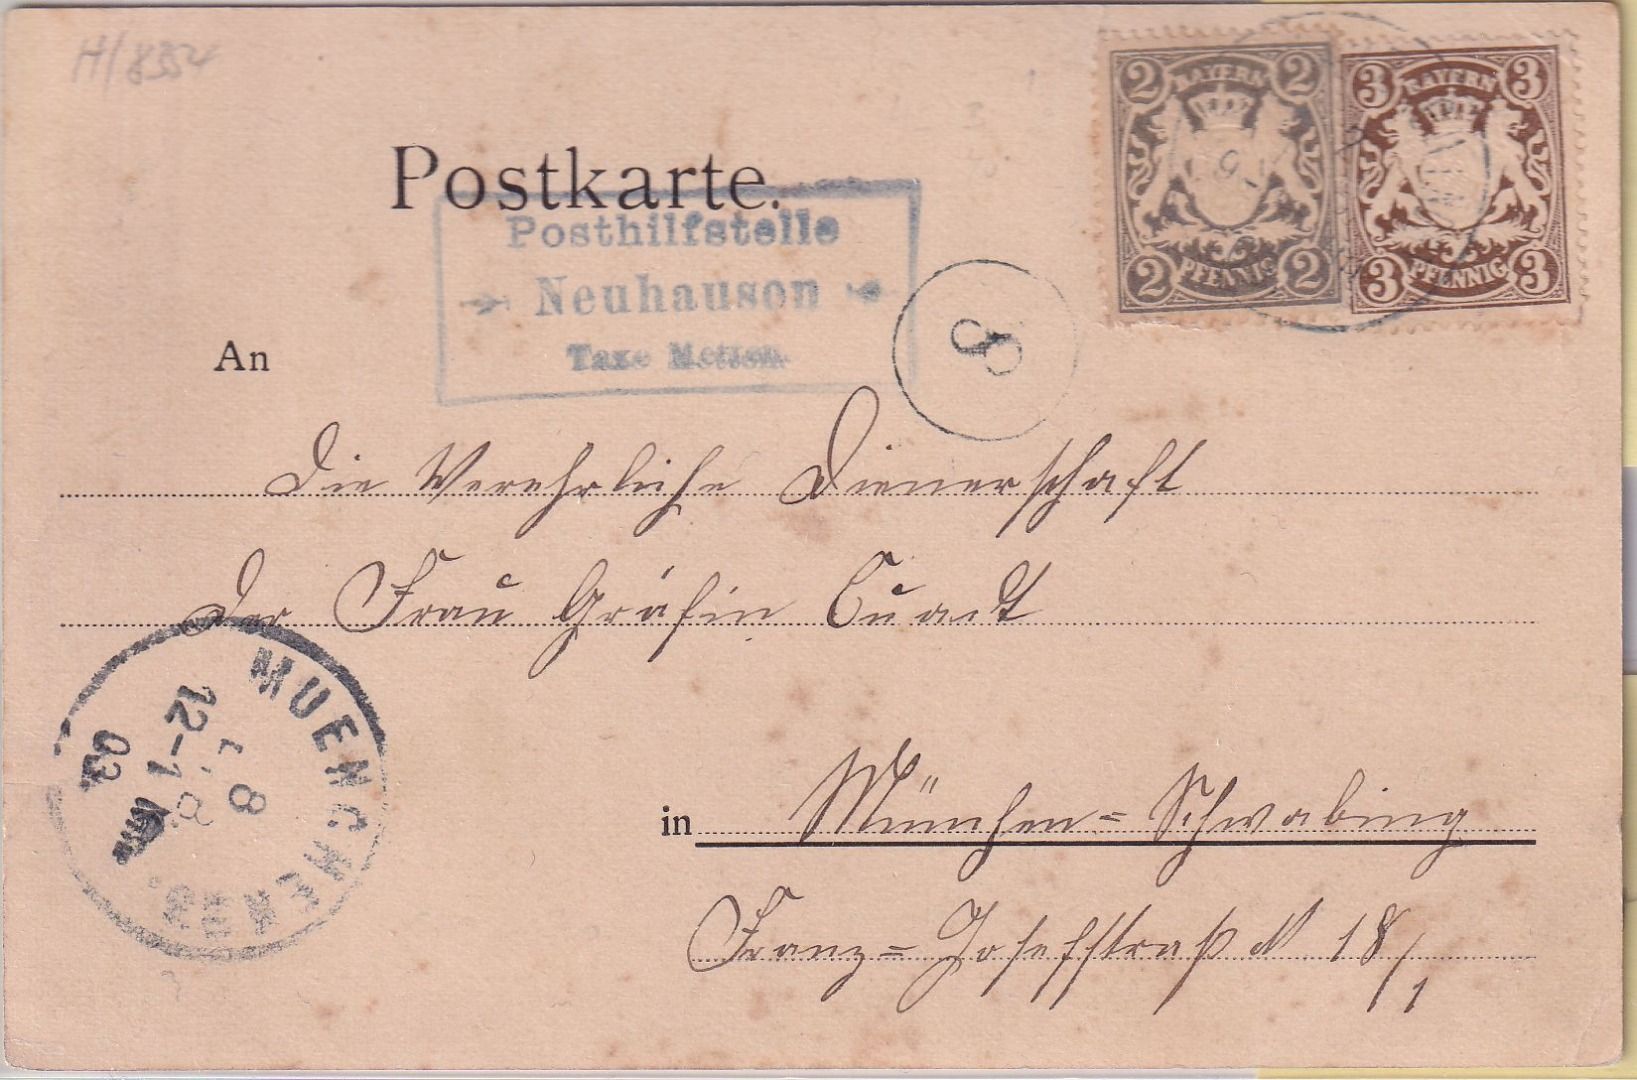 H/8354
2 BAYERN 2
2 PFENNIG 2
3 BAYERN 3
3 PFENNIG 3
Postkarte.
Posthilfstelle
Neuhausen
Taxe Metten.
An
Die Verehrliche Dienerschaft
der Frau Gräfin Quadt
in München=Schwabing
Franz=Josefstraß N 18/1
MUENCHEN
12-1
03